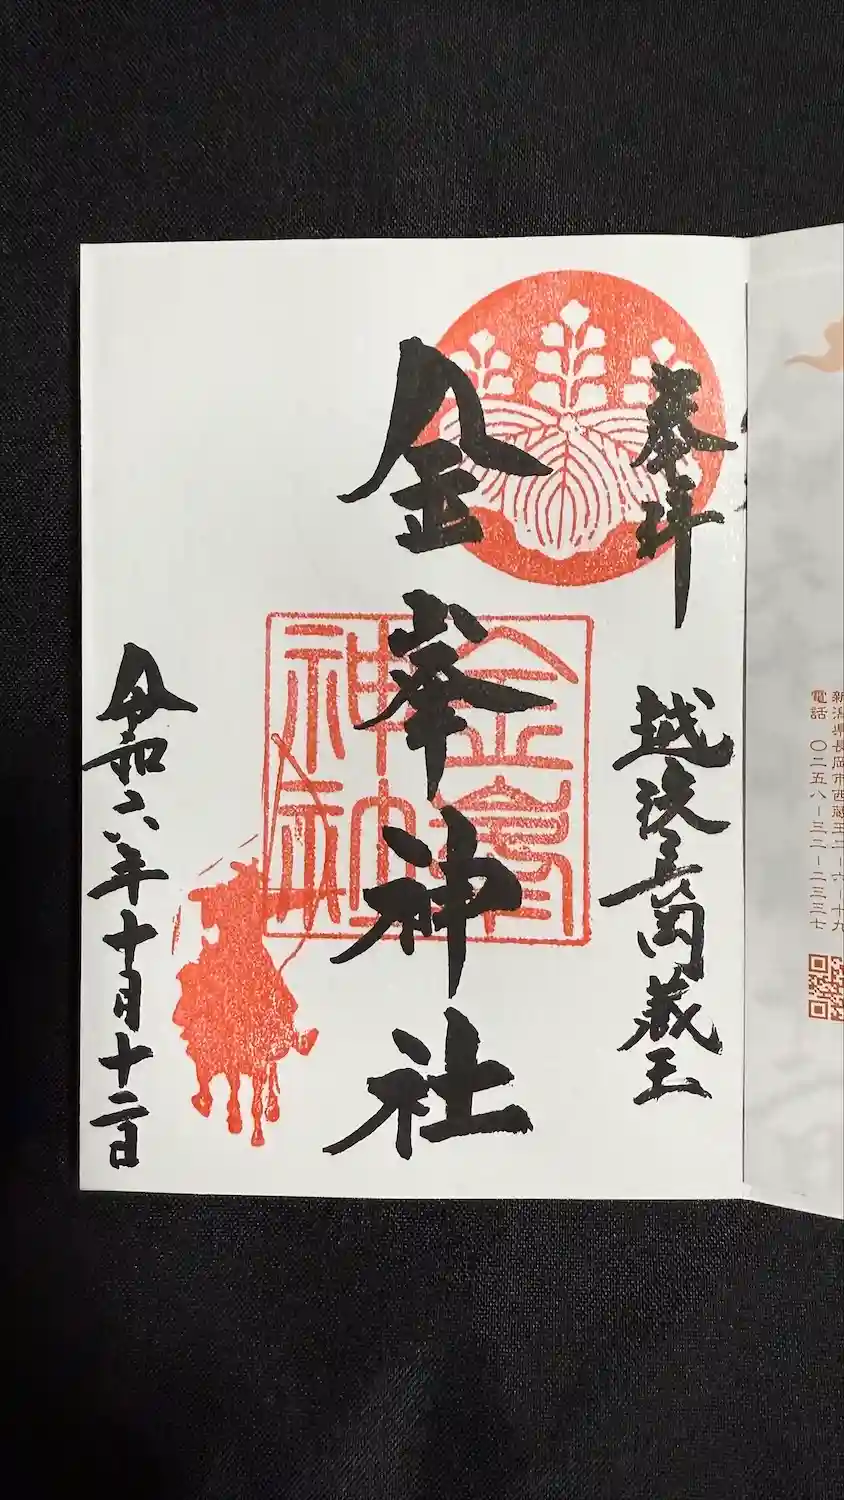 新潟県長岡市西蔵王二－六－十九
電話 〇二五八－三二－二三三七
奉拝
越後長岡蔵王
金峯神社
金峯神社
令和六年十月十二日